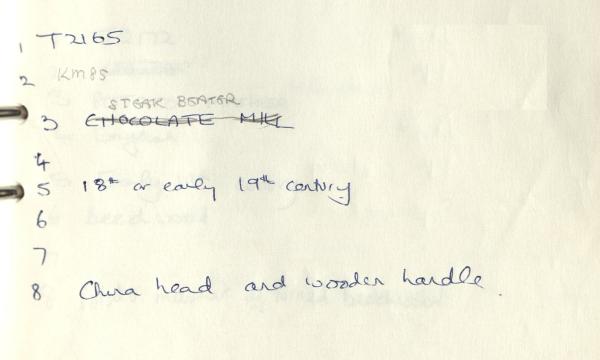 1 T2165
2 KM85
STEAK BEATER
3 CHOCOLATE MILL
4
5 18th or early 19th century
6
7
8 China head and wooden handle.